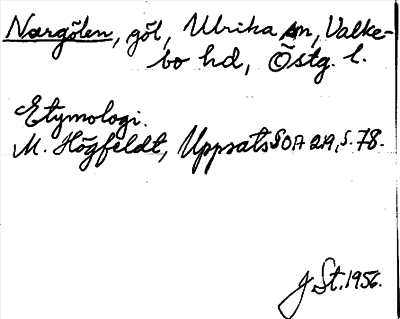 Nargölen, göl, Ulrika sn, Valke-
bo hd, Östg. l.
Etymologi.
M. Högfeldt, Uppsats SOA 219, s. 78.
J St. 1956.